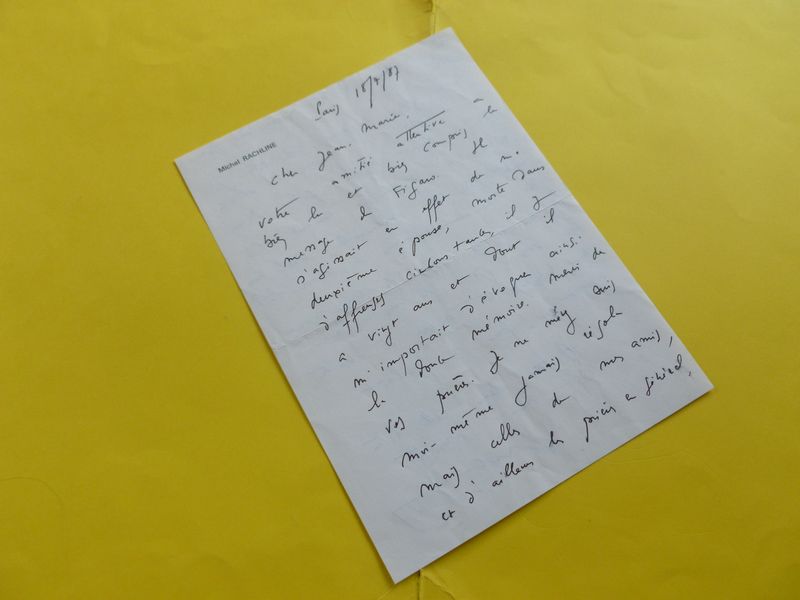 Paris 18/7/87
Michel RACHLINE
Cher Jean-Marie,
votre amitié attentive a
bien lu et bien compris le
message du Figaro. Il
s'agissait en effet de ma
deuxième épouse, morte dans
d'affreuses circonstances, il y
a vingt ans et dont il
m'importait d'évoquer ainsi
la mémoire. Merci de
vos prières. Je ne m'y suis
moi-même jamais résolu
mais celles de mes amis,
et d'ailleurs les prières en général,